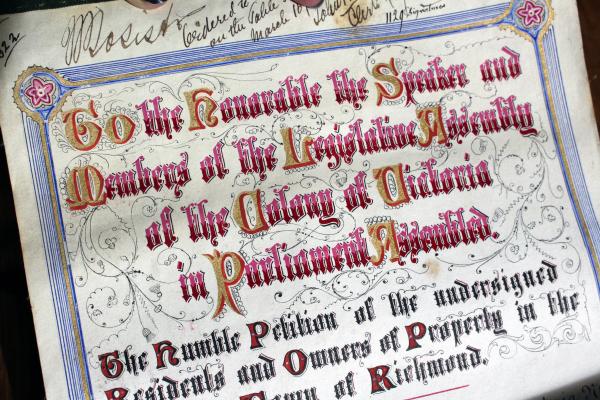 W Bosisto
Ordered to
on the Table
March 10
John
Clerk
1129 Signatures
To the Honorable the Speaker and
Members of the Legislative Assembly
of the Colony of Victoria
in Parliament Assembled.
The Humble Petition of the undersigned
Residents and Owners of Property in the
Town of Richmond.